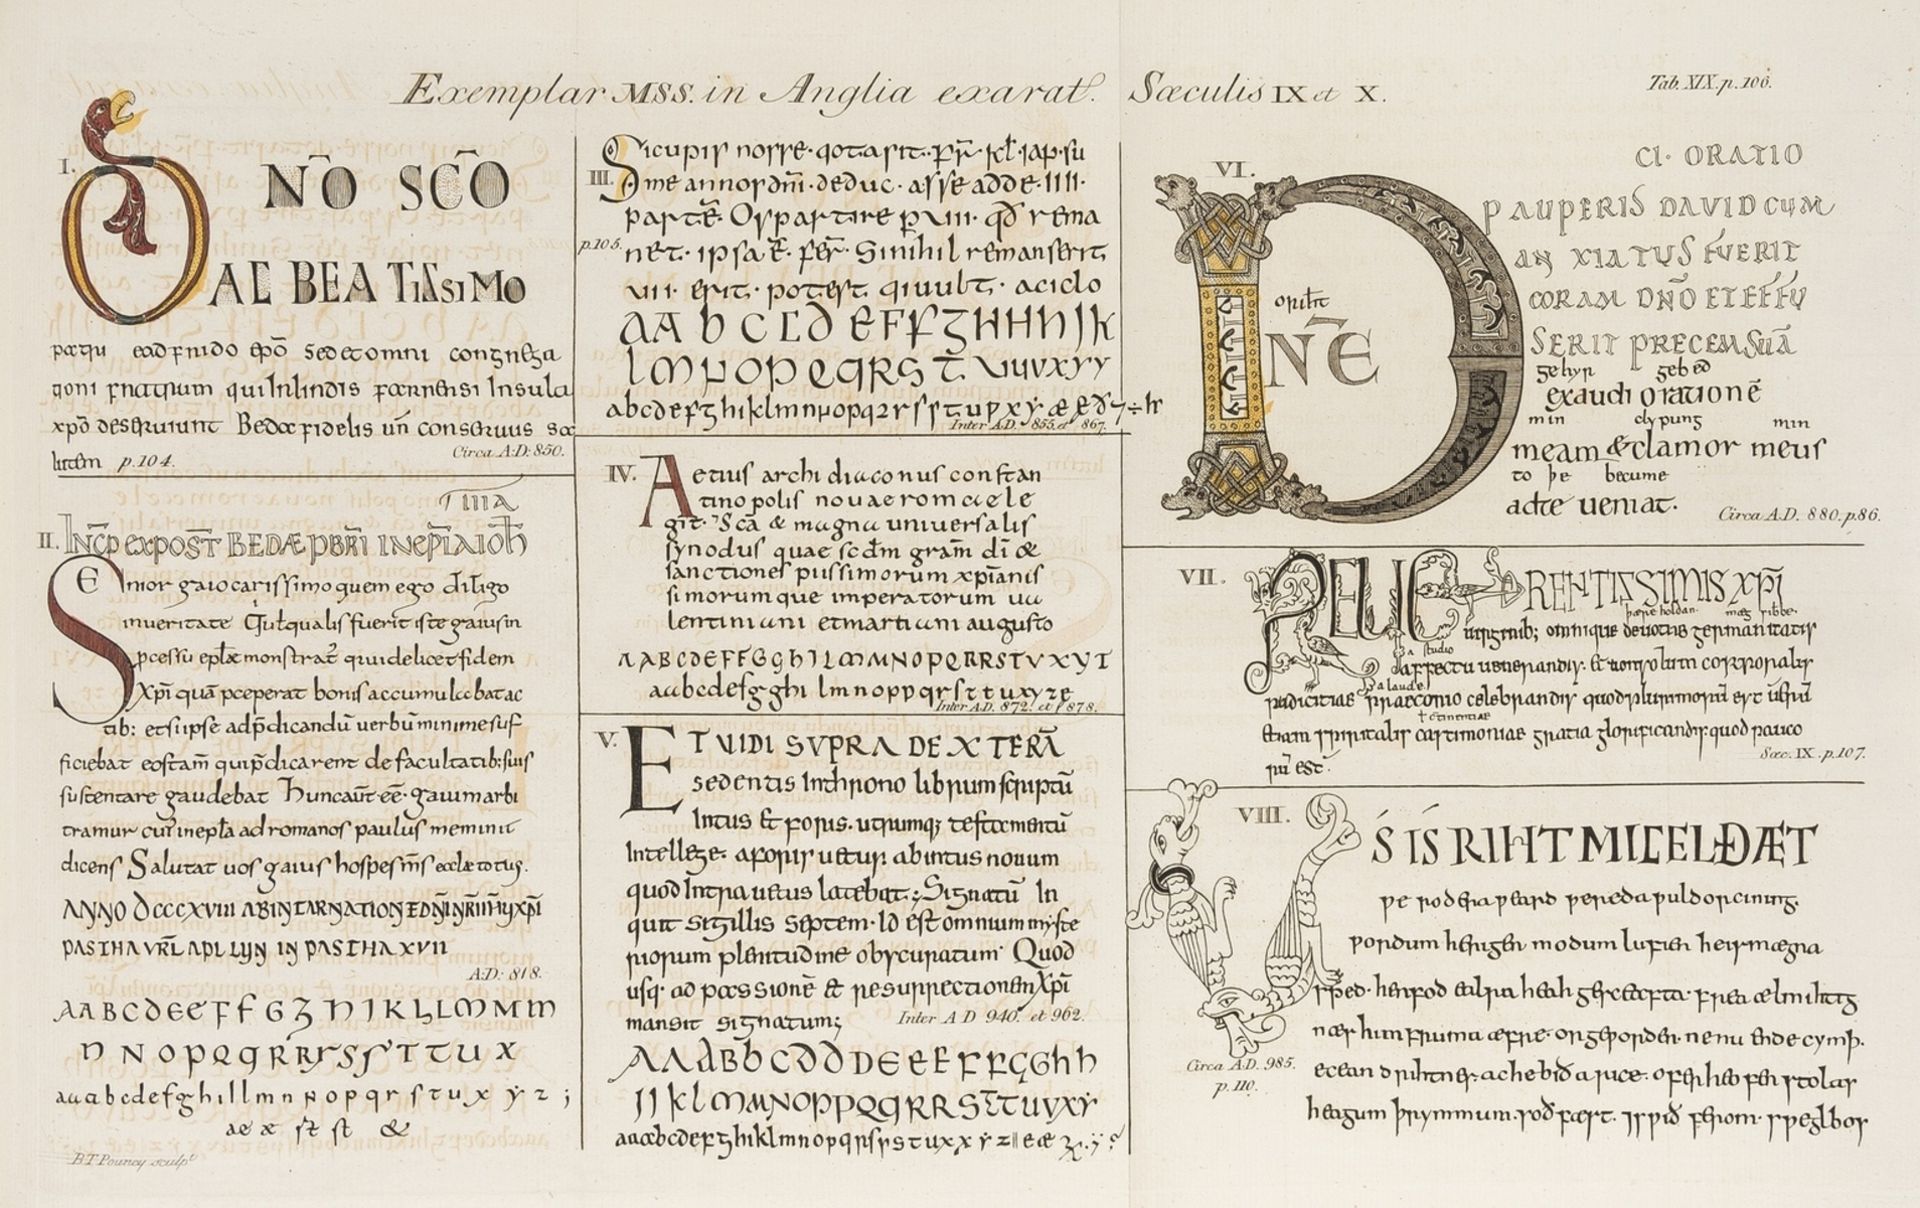 Exemplar MSS. in Anglia exarat. Sæculis IX et X.
Tab. XIX. p. 106.
I.
DNO SCO
AC BEATISSIMO
patri eadfrido epō sed et omni congrega
tioni fratrum qui in lindis farnensi insula
xpō deseruiunt Beda fidelis ur̄ conseruus sa
lutem p.104.
Circa A:D:850.
II.
INCP EXPOST BEDÆ PBRI IN EPLA IOH
TIIIA
SEnior gaio carissimo quem ego diligo
in ueritate Qualis fuerit iste gaius in
pcessu eplæ monstrat qui uidelicet fidem
Xpi quā pceperat bonis accumulabat ac
tib: etsi ipse ad p̄dicandū uerbū minime suf
ficiebat eos tam̄ qui p̄dicarent de facultatib: suis
sustentare gaudebat Hunc aūt eē gaium arbi
tramur cui in epla ad romanos paulus meminit
dicens Salutat uos gaius hospes m̄s ecclæ totus.
ANNO DCCCXVIII AB INCARNATIONE DNI NRI IHU XPI
A:D: 818.
A A B C D E E F F G Z H I K L L M M M
N N O P Q Q R R S S T T U X
a u a b c d e f g h i l l m n N o p q r ſ t u x ẏ z ;
ae æ ſt ſt &
B T Pouncy sculpt
III.
Si cupis nosse quota sit fr̄ kl iap su
me annor dm̄ deduc asse adde IIII
partē Os partire p XIII qd rema
p.105.
net ipsa ē fer̄ Si nihil remanserit
VII erit potest qi uult a ciclo
A A b C C D E F F F Z H H N J K
L M N O P Q q R S T U U U V X Y Y
a b c d e f g h i k l m n N o p q 2 r s ſ t u p x y æ & ð 7 ÷ lr
Inter A.D. 855. et 867.
IV.
Aetius archi diaconus constan
tinopolis nouae romae le
git Scā & magna uniuersalis
synodus quae scdm gram̄ di &
sanctiones piissimorum xpianis
simorumque imperatorum ua
lentiniani et martiani augusto
A A B C D E F F G G h I L M M N O P Q R R S T V X Y T
a u b c d e f g g h i l m n o p p q r ſ t t u x y z e
Inter A.D. 872. et 878.
V.
ET UIDI SVPRA DEXTERĀ
sedentis In throno librum scriptū
Intus Et foris. utrumq; testamentū
Intellege. a foris uetus ab intus nouum
quod Intra uetus latebat; Signatū In
quit sigillis septem. Id est omnium myste
riorum plenitudine obscuratum Quod
usq; ad passionē Et resurrectionem Xpi
mansit signatum;
Inter A D 940. et 962.
A A A B b C D D D E E F F F G G h h
I J k L M M N O P P Q q R R S T T U V X Y
a u œ b c d e f g h i k l m n o p q r ſ y s t u x x y z
VI.
CI· ORATIO
PAUPERIS DAVID CUM
ANXIATUS FUERIT
CORAM DNŌ ET EFFU
SERIT PRECEM SUĀ
DNE
gehyr gebed
exaudi orationē
min clypung min
meam & clamor meus
to þe becume
ad te ueniat.
Circa A.D. 880. p.86.
VII.
REUERENTISSIMIS XPI
uirginib; omnique deuotae germanitatis
studio
affectu uenerandis. Et non solum corporalis
a laude
pudicitiae praeconio celebrandis quod plurimorū est uerū
Etiam spiritalis castimoniae gratia glorificandis quod pauco
rū est.
Sæc. IX. p.107.
VIII.
ÐÚS IS RIHT MICEL ÐÆT
we rodera weard wereda wuldorcining.
wordum herigen modum lufien he is mægna
sped. heafod ealra heah gesceafta. frea ælmihtig
næs him fruma æfre. or geworden. ne nu ende cymþ.
ecean drihtnes. ac he bið a rice. ofer heofen stolas
heagum þrymmum. soðfæst. 7 swið ferom. sweglbos
Circa A.D. 985.
p. 110.